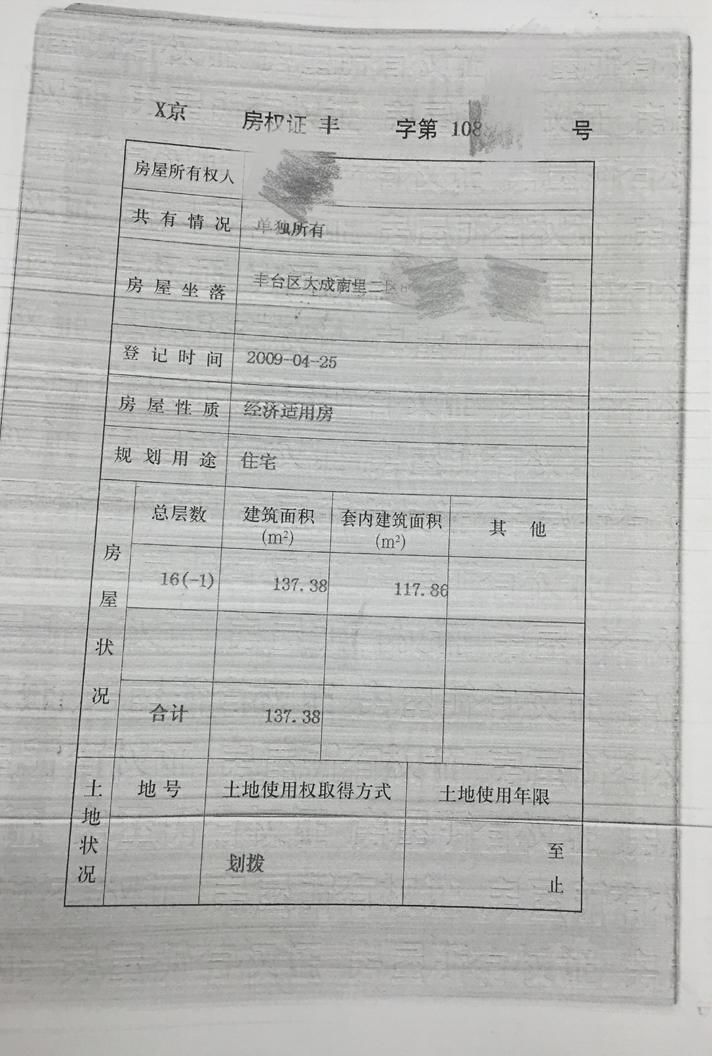 X京 房权证 丰 字第 108 号
房屋所有权人
共有情况 单独所有
房屋坐落 丰台区大成南里二区
登记时间 2009-04-25
房屋性质 经济适用房
规划用途 住宅
房屋状况
总层数 建筑面积(m²) 套内建筑面积(m²) 其他
16(-1) 137.38 117.86
合计 137.38
土地状况
地号 土地使用权取得方式 土地使用年限
划拨 至
止